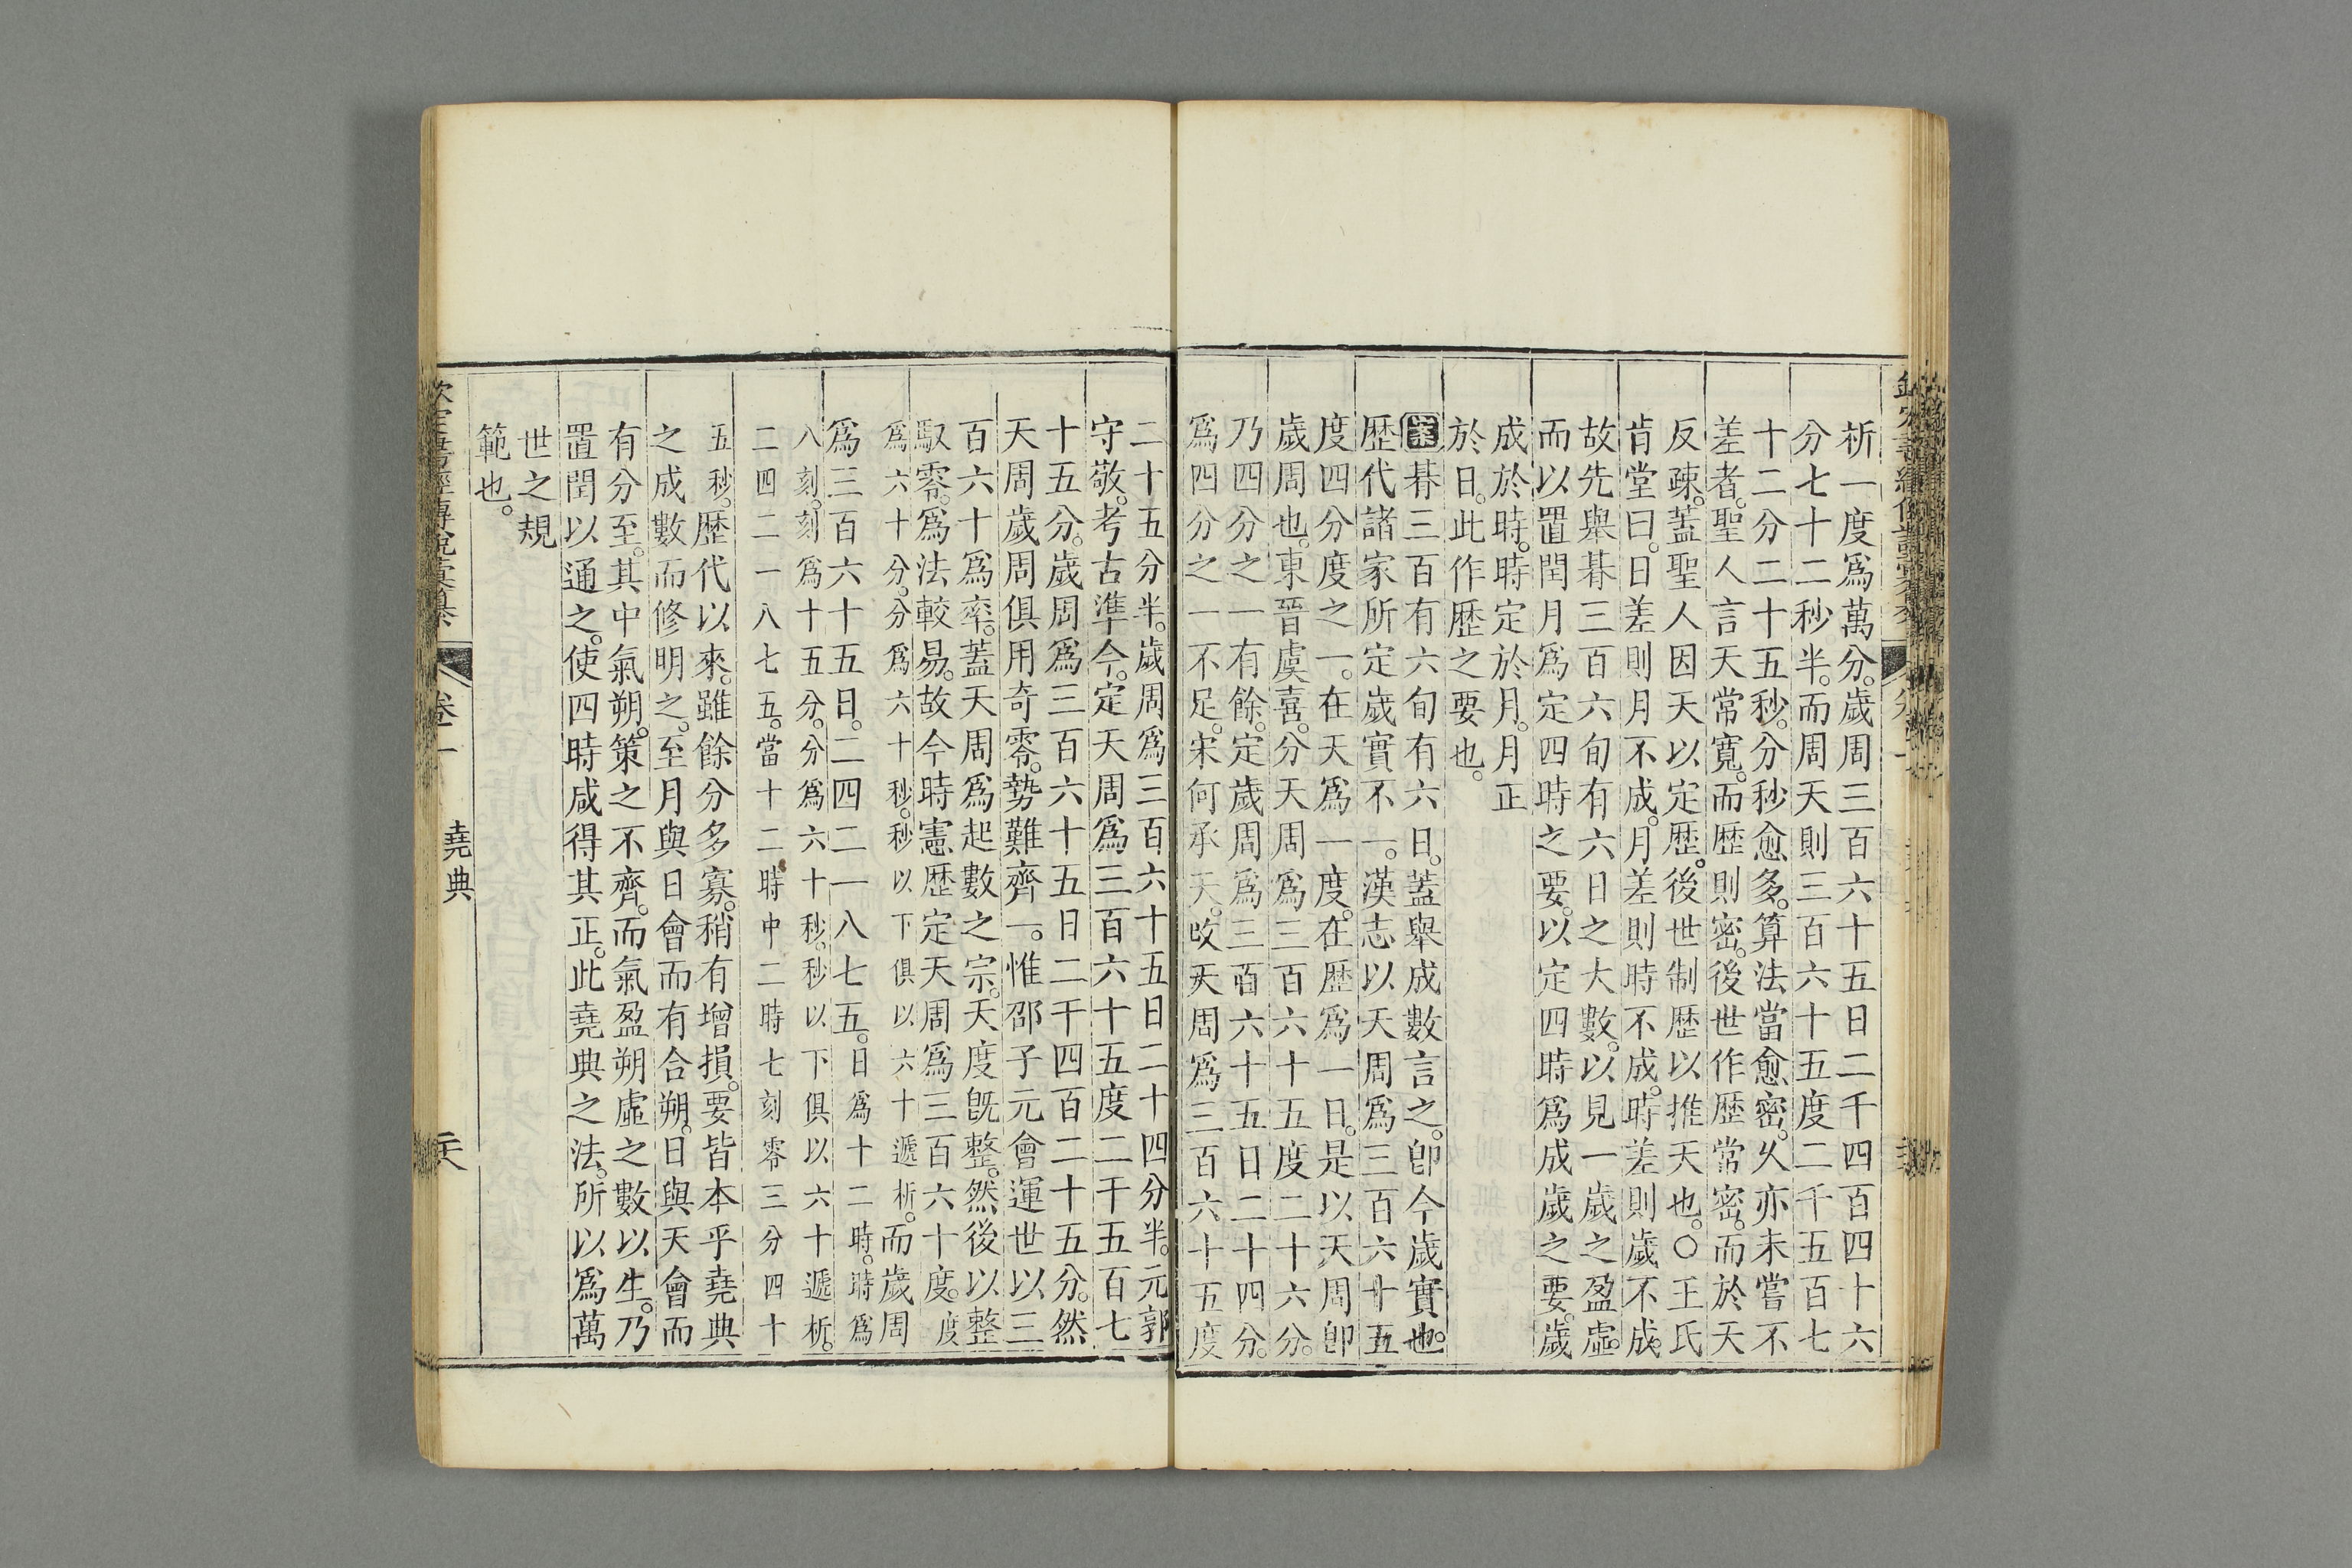 析一度爲萬分。歲周三百六十五日二千四百四十六
分七十二秒半。而周天則三百六十五度二千五百七
十二分二十五秒。分秒愈多。算法當愈密。久亦未嘗不
差者。聖人言天常寬。而歷則密。後世作歷常密。而於天
反疎。蓋聖人因天以定歷。後世制歷以推天也。○王氏
肯堂曰。日差則月不成。月差則時不成。時差則歲不成。
故先舉朞三百六旬有六日之大數。以見一歲之盈虛。
而以置閏月爲定四時之要。以定四時爲成歲之要。歲
成於時。時定於月。月正
於日。此作歷之要也。
案朞三百有六旬有六日。蓋舉成數言之。卽今歲實也。
歷代諸家所定歲實不一。漢志以天周爲三百六十五
度四分度之一。在天爲一度。在歷爲一日。是以天周卽
歲周也。東晉虞喜。分天周爲三百六十五度二十六分。
乃四分之一有餘。定歲周爲三百六十五日二十四分。
爲四分之一不足。宋何承天。攺天周爲三百六十五度
二十五分半。歲周爲三百六十五日二十四分半。元郭
守敬。考古準今。定天周爲三百六十五度二千五百七
十五分。歲周爲三百六十五日二千四百二十五分。然
天周歲周俱用奇零。勢難齊一。惟邵子元會運世以三
百六十爲率。蓋天周爲起數之宗。天度旣整。然後以整
馭零。爲法較易。故今時憲歷定天周爲三百六十度。度
爲六十分。分爲六十秒。秒以下俱以六十遞析。而歲周
爲三百六十五日。二四二一八七五。日爲十二時。時爲
八刻。刻爲十五分。分爲六十秒。秒以下俱以六十遞析。
二四二一八七五。當十二時中二時七刻零三分四十
五秒。歷代以來。雖餘分多寡。稍有增損。要皆本乎堯典
之成數而修明之。至月與日會而有合朔。日與天會而
有分至。其中氣朔。策之不齊。而氣盈朔虛之數以生。乃
置閏以通之。使四時咸得其正。此堯典之法。所以爲萬
世之規
範也。
欽定書經傳說彙纂
卷一
堯典